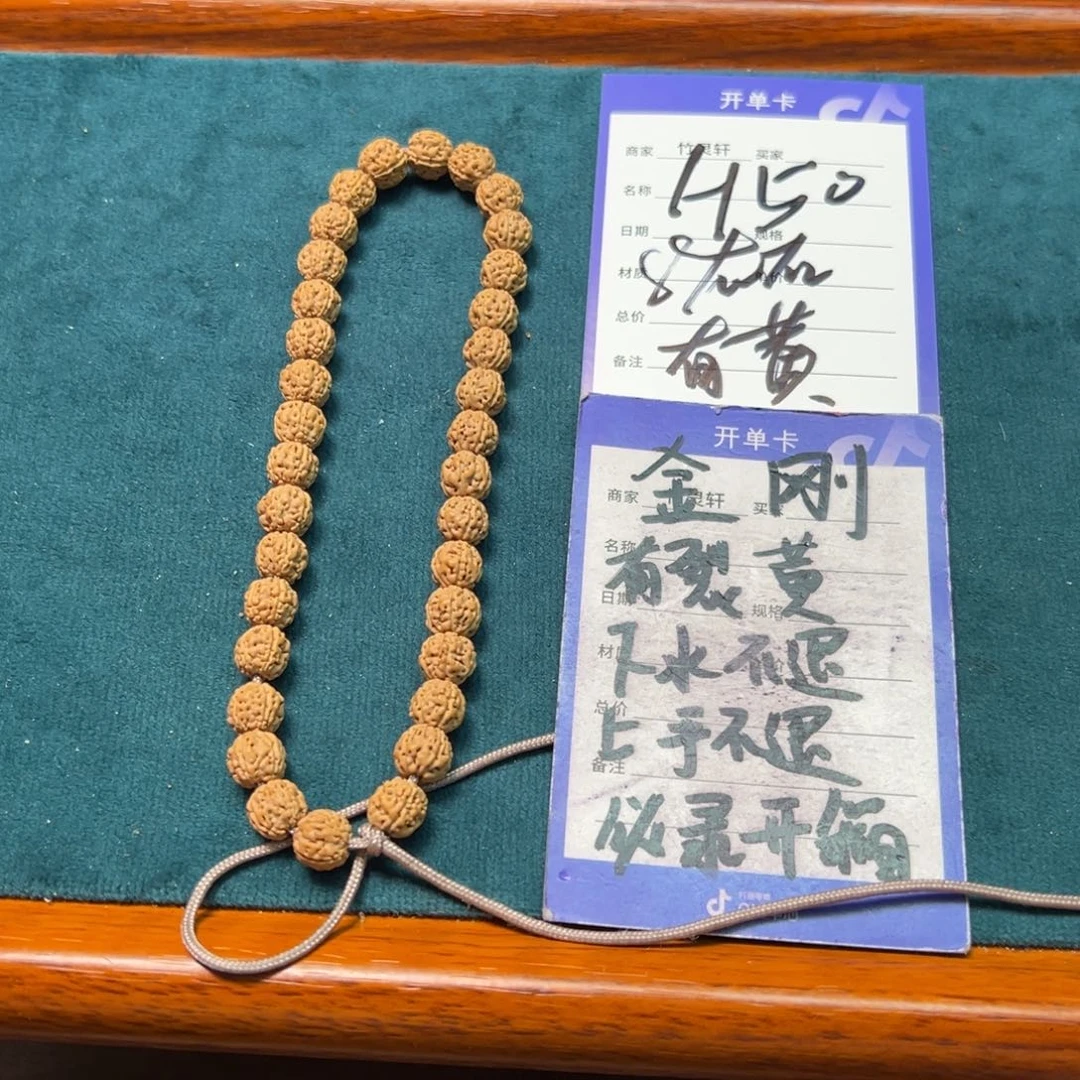 开单卡
商家 竹灵轩 买家
H50
名称
日期 规格
材质
总价
有黄
备注
开单卡
金刚
商家 灵轩 买
名称
有裂黄
日期 规格
下水不退
总价
上手不退
备注
必录开箱